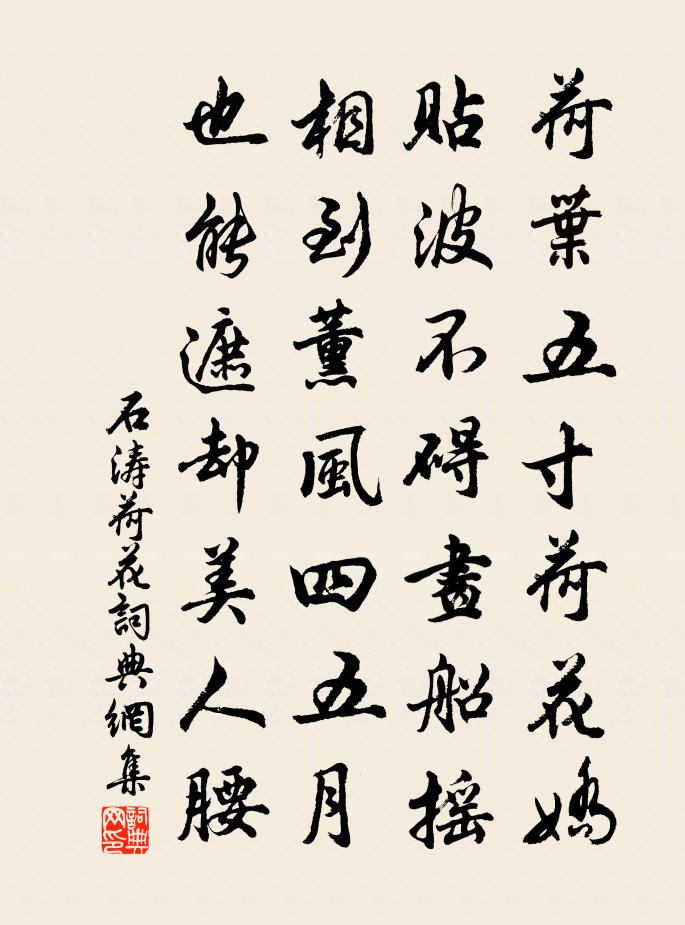 荷葉五寸荷花嬌
貼波不碍畫船摇
相到薰風四五月
也能遮却美人腰
石涛荷花詞典網集
詞典網印